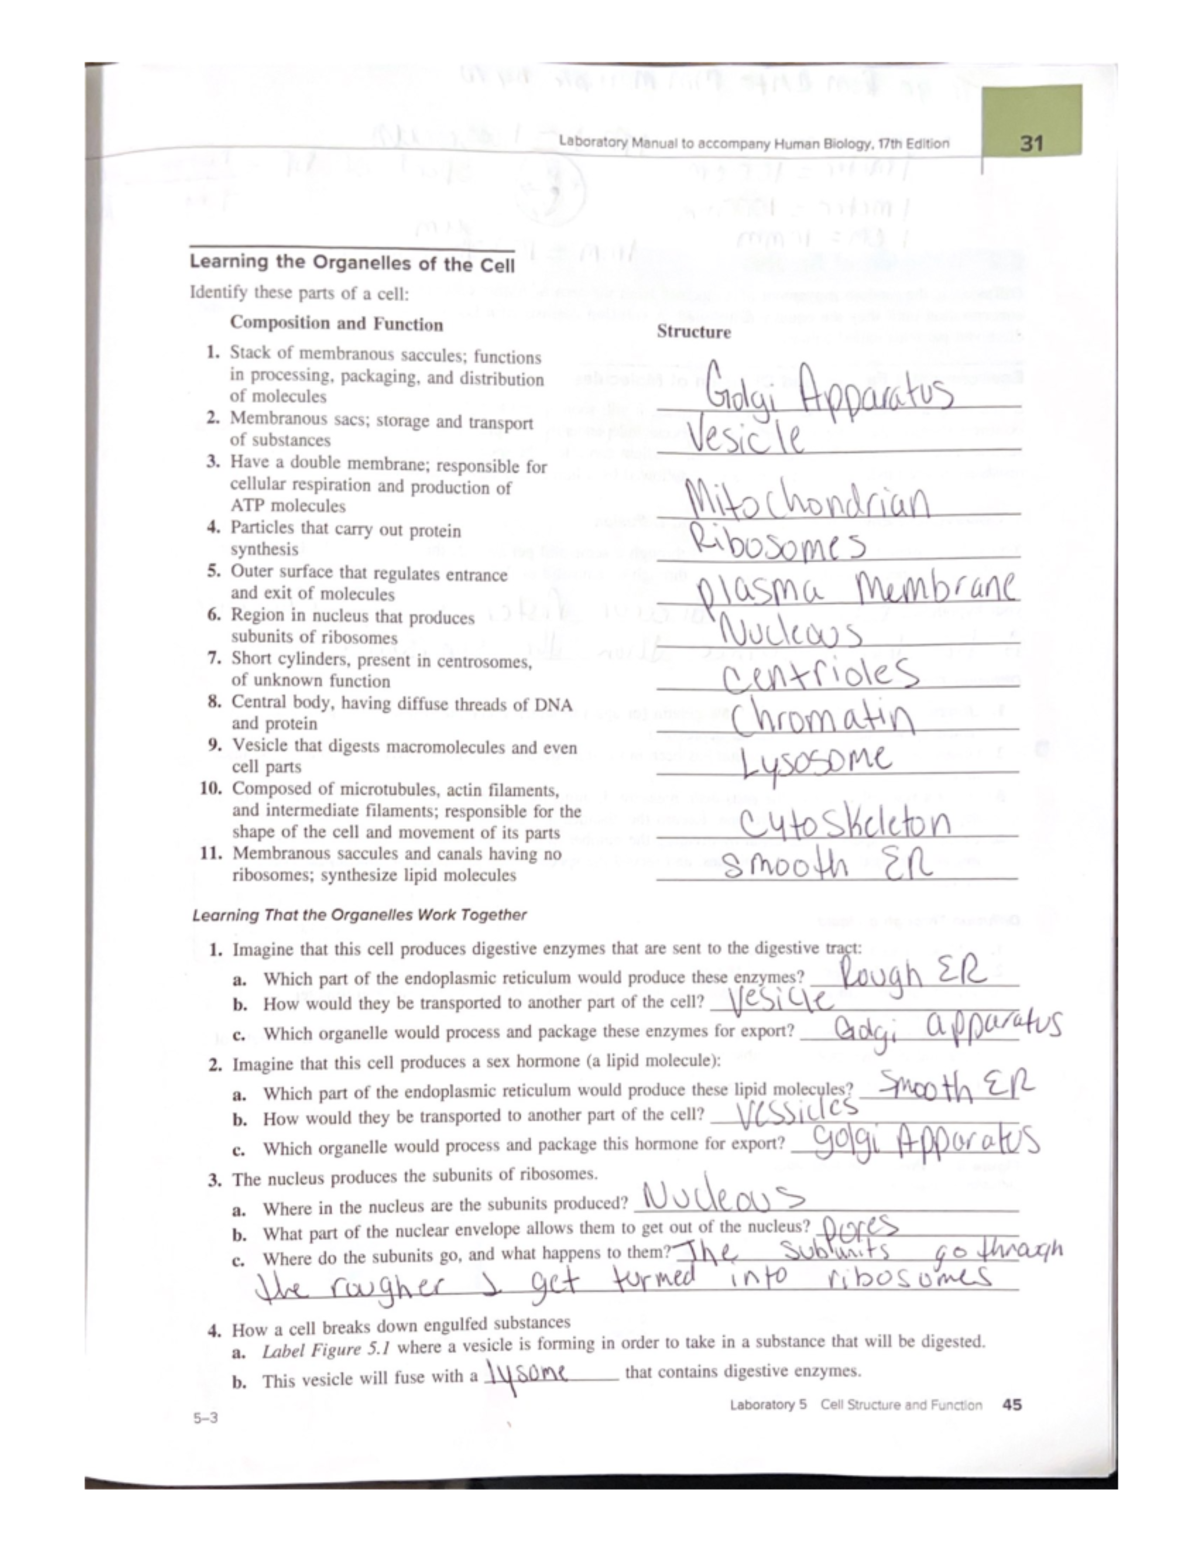 Laboratory Manual to accompany Human Biology, 17th Edition 31
Learning the Organelles of the Cell
Identify these parts of a cell:
Composition and Function Structure
1. Stack of membranous saccules; functions
in processing, packaging, and distribution
of molecules Golgi Apparatus
2. Membranous sacs; storage and transport
of substances Vesicle
3. Have a double membrane; responsible for
cellular respiration and production of
ATP molecules Mitochondrian
4. Particles that carry out protein
synthesis Ribosomes
5. Outer surface that regulates entrance
and exit of molecules plasma Membrane
6. Region in nucleus that produces
subunits of ribosomes Nucleous
7. Short cylinders, present in centrosomes,
of unknown function Centrioles
8. Central body, having diffuse threads of DNA
and protein Chromatin
9. Vesicle that digests macromolecules and even
cell parts Lysosome
10. Composed of microtubules, actin filaments,
and intermediate filaments; responsible for the
shape of the cell and movement of its parts Cytoskeleton
11. Membranous saccules and canals having no
ribosomes; synthesize lipid molecules Smooth ER
Learning That the Organelles Work Together
1. Imagine that this cell produces digestive enzymes that are sent to the digestive tract:
a. Which part of the endoplasmic reticulum would produce these enzymes? Rough ER
b. How would they be transported to another part of the cell? Vesicle
c. Which organelle would process and package these enzymes for export? Golgi apparatus
2. Imagine that this cell produces a sex hormone (a lipid molecule):
a. Which part of the endoplasmic reticulum would produce these lipid molecules? Smooth ER
b. How would they be transported to another part of the cell? Vessicles
c. Which organelle would process and package this hormone for export? Golgi Apparatus
3. The nucleus produces the subunits of ribosomes.
a. Where in the nucleus are the subunits produced? Nucleous
b. What part of the nuclear envelope allows them to get out of the nucleus? Pores
c. Where do the subunits go, and what happens to them? The subunits go through
the rougher & get turned into ribosomes
4. How a cell breaks down engulfed substances
a. Label Figure 5.1 where a vesicle is forming in order to take in a substance that will be digested.
b. This vesicle will fuse with a lysome that contains digestive enzymes.
5–3 Laboratory 5 Cell Structure and Function 45